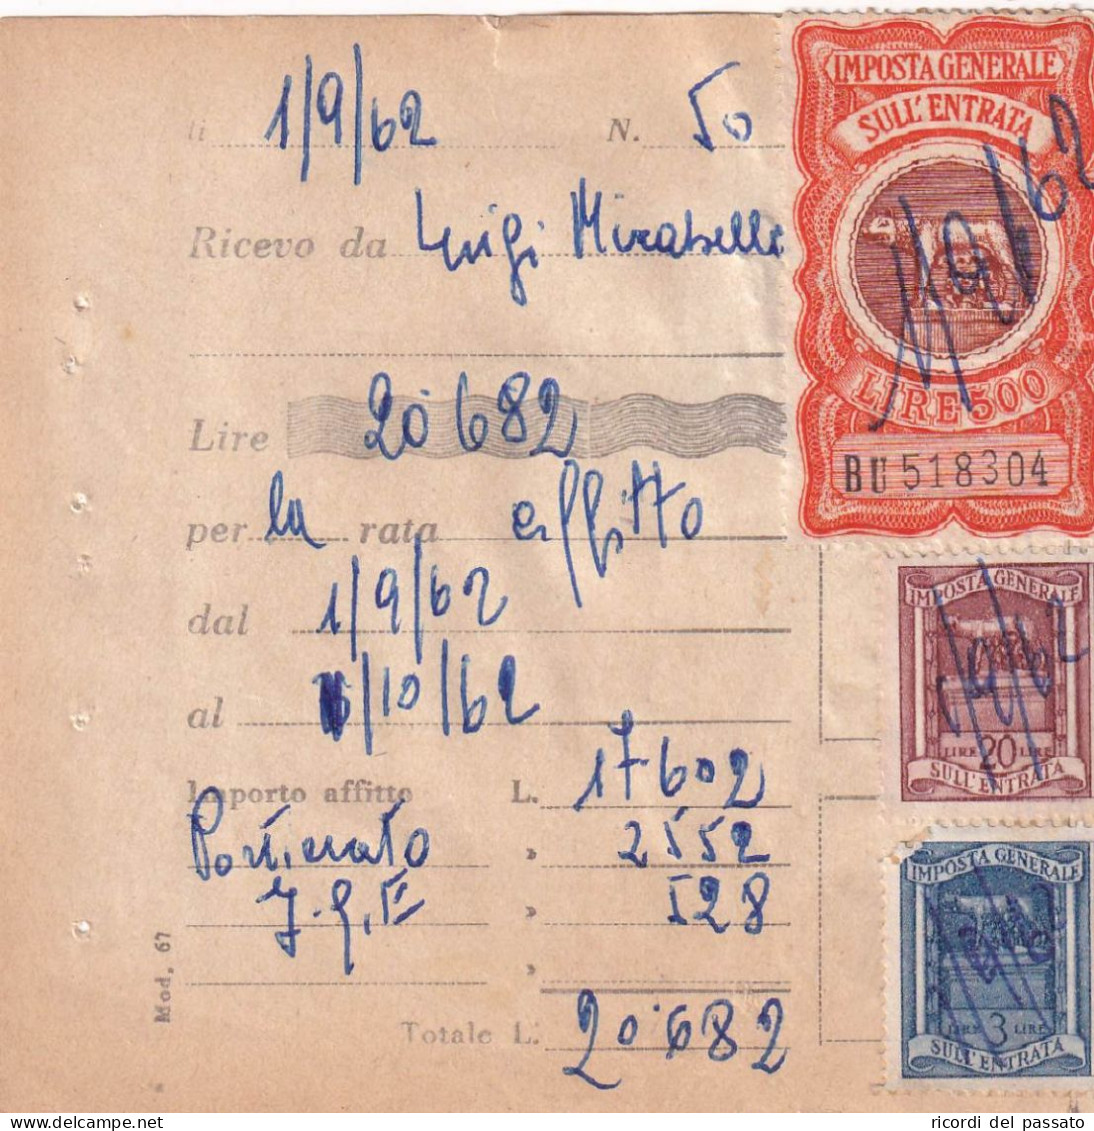 li 1/9/62 N. 50
Ricevo da Luigi Mirabelli
Lire 20.682
per la rata affitto
dal 1/9/62
al /10/62
Importo affitto L. 17602
Portierato » 2552
I.G.E » 528
»
Totale L. 20.682
Mod. 67
IMPOSTA GENERALE
SULL'ENTRATA
1/9/62
LIRE 500
BU 518304
IMPOSTA GENERALE
1/9/62
LIRE 20 LIRE
SULL'ENTRATA
IMPOSTA GENERALE
LIRE 3 LIRE
SULL'ENTRATA
ricordi del passato